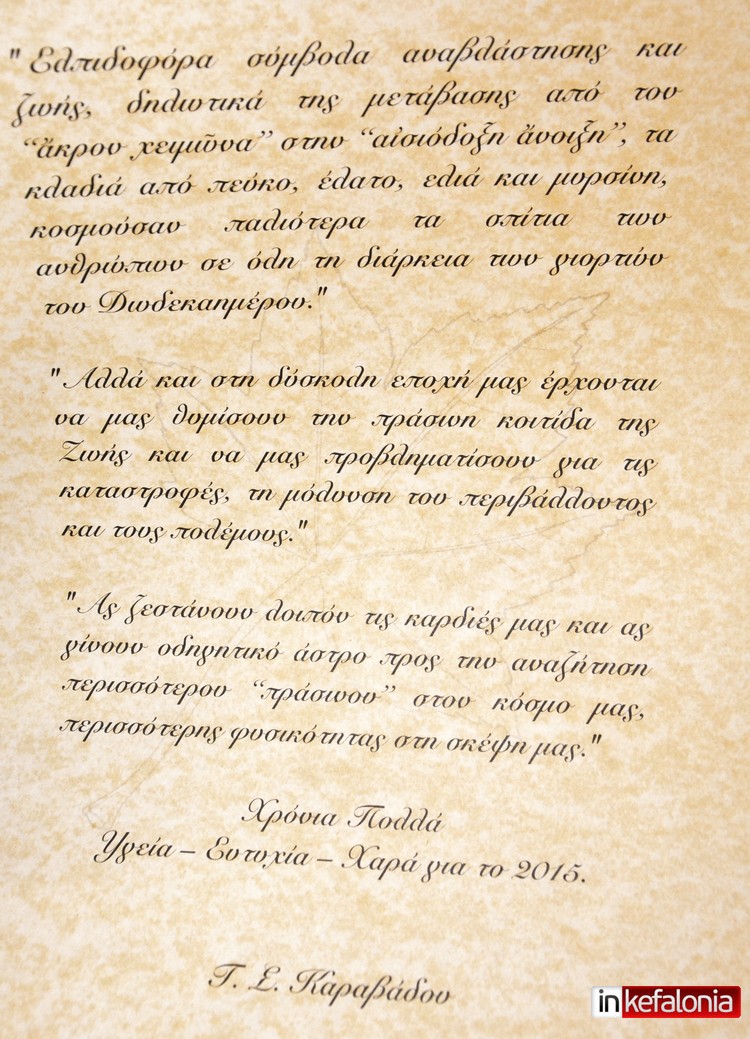 "Ελπιδοφόρα σύμβολα αναβλάστησης και
ζωής, δηλωτικά της μετάβασης από τον
“ἄκρον χειμῶνα” στην “αἰσιόδοξη ἄνοιξη”, τα
κλαδιά από πεύκο, έλατο, ελιά και μυρσίνη,
κοσμούσαν παλιότερα τα σπίτια των
ανθρώπων σε όλη τη διάρκεια των γιορτών
του Δωδεκαημέρου."
"Αλλά και στη δύσκολη εποχή μας έρχονται
να μας θυμίσουν την πράσινη κοιτίδα της
Ζωής και να μας προβληματίσουν για τις
καταστροφές, τη μόλυνση του περιβάλλοντος
και τους πολέμους."
"Ας ζεστάνουν λοιπόν τις καρδιές μας και ας
γίνουν οδηγητικό άστρο προς την αναζήτηση
περισσότερου “πράσινου” στον κόσμο μας,
περισσότερης φυσικότητας στη σκέψη μας."
Χρόνια Πολλά
Υγεία – Ευτυχία – Χαρά για το 2015.
Τ. Σ. Καραβάδου
inkefalonia